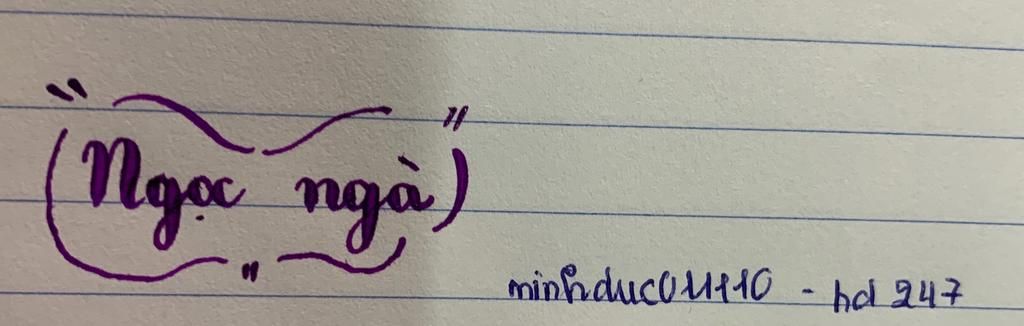 "Ngọc ngà"
minhduc011110 - hd 247